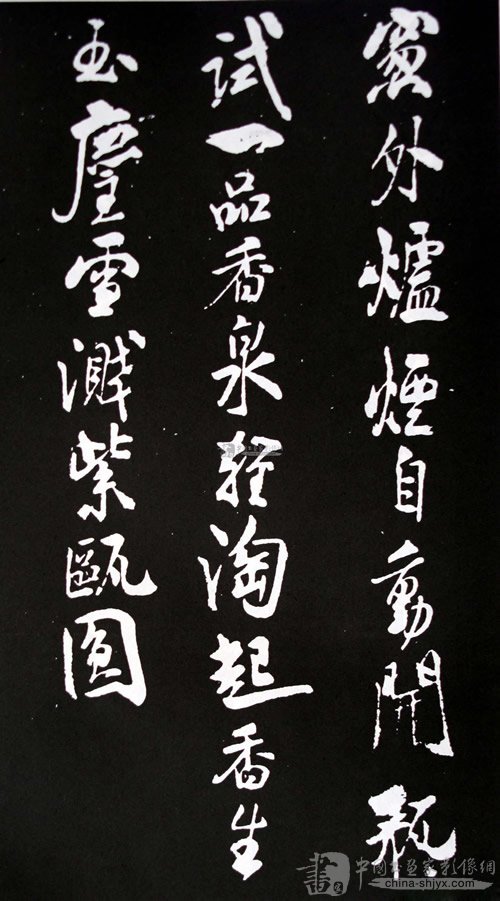 窻外爐煙自動開瓶
試一品香泉輕淘起香生
玉塵雪濺紫甌圓
中國書畫家影像網
www.china-shjyx.com